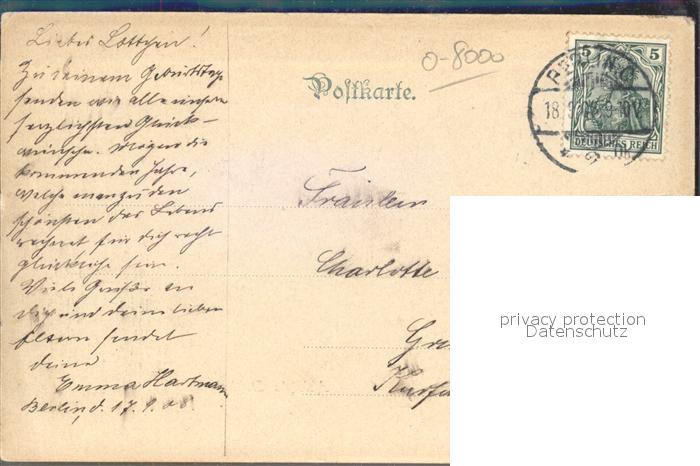 Liebes Lottchen!
Zu deinem Geburtstage
senden wir alle unsere
herzlichsten Glück-
wünsche. Mögen die
kommenden Jahre,
welche man zu den
schönsten des Lebens
rechnet für dich recht
glückliche sein.
Viele Grüße an
dich und deine lieben
Eltern sendet
deine
Emma Hartmann
Berlin, d. 17.9.08
0-8000
Postkarte.
5 5
BERLIN
18.
DEUTSCHES REICH
Fräulein
Charlotte
privacy protection
Datenschutz